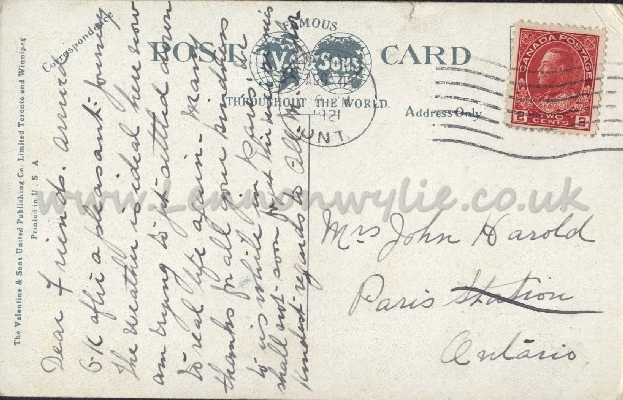 Correspondence
FAMOUS
POST CARD
V. Sons
THROUGHOUT THE WORLD.
Address Only
1921
ONT.
CANADA POSTAGE
2 TWO CENTS 2
The Valentine & Sons United Publishing Co. Limited Toronto and Winnipeg
Printed in U S A
Dear Friends. Arrived
O.K. after a pleasant journey
The weather is ideal here now
am trying to get settled down
to real life again - Many
thanks for all your kindness
to us while in Paris. We
shall not soon forget
kindest regards to all
Mrs John Harold
Paris Station
Ontario.
www.Lennonwylie.co.uk